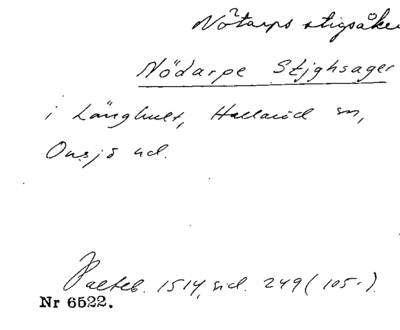 Nötarps stigsåke
Nödarpe Stjghsager
i Långhult, Hallaröd sn,
Onsjö hd.
Palteb. 1514, sid. 249 (105.).
Nr 6522.